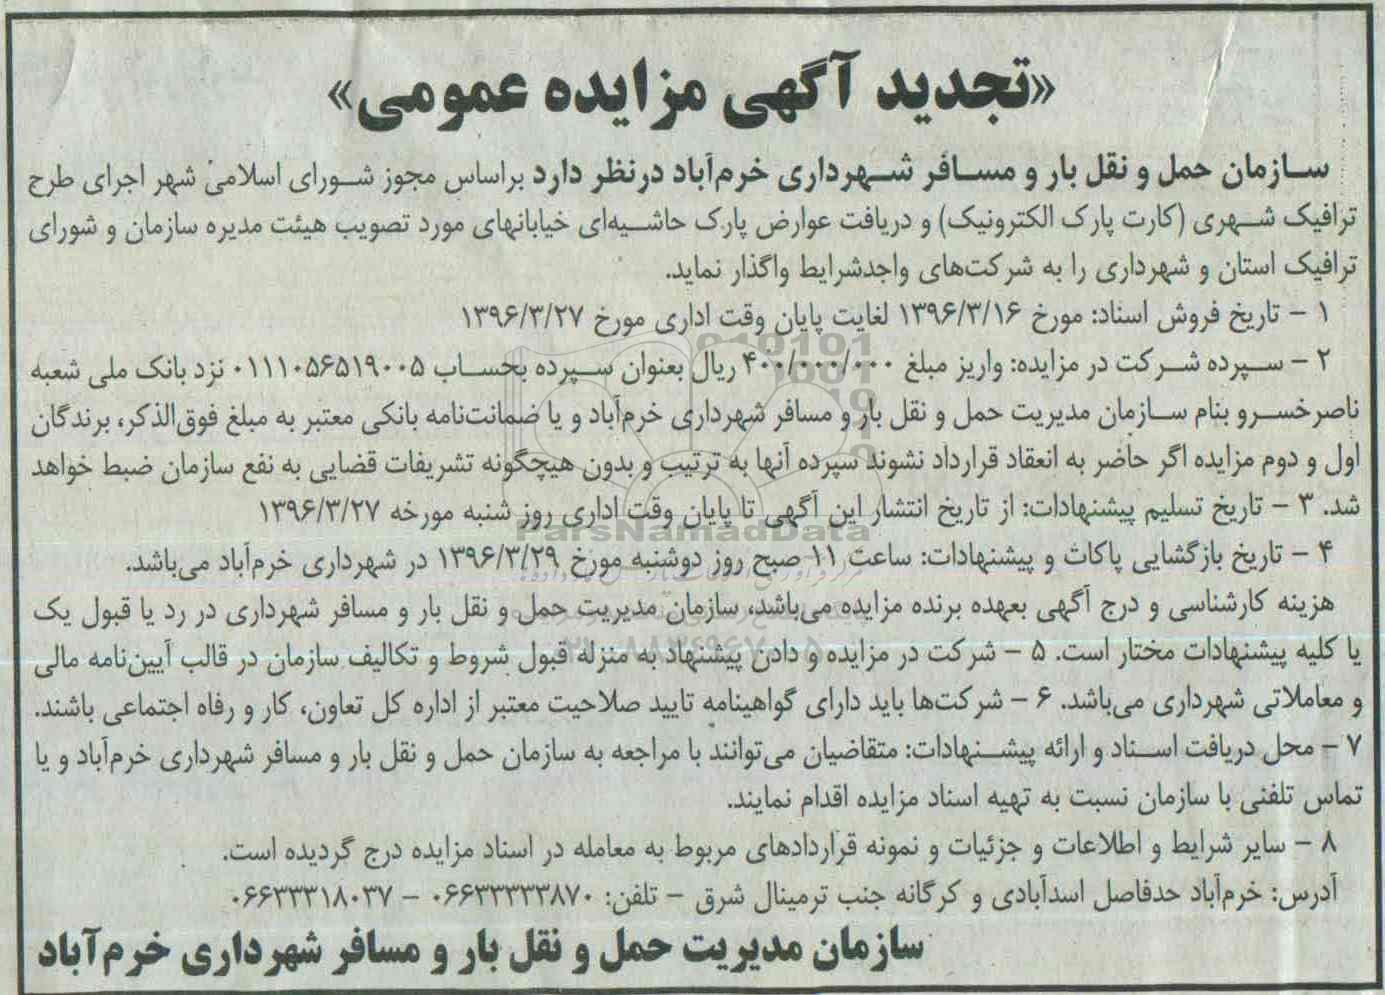 «تجدید آگهی مزایده عمومی»
سازمان حمل و نقل بار و مسافر شهرداری خرم‌آباد درنظر دارد براساس مجوز شورای اسلامی شهر اجرای طرح
ترافیک شهری (کارت پارک الکترونیک) و دریافت عوارض پارک حاشیه‌ای خیابانهای مورد تصویب هیئت مدیره سازمان و شورای
ترافیک استان و شهرداری را به شرکت‌های واجدشرایط واگذار نماید.
۱ – تاریخ فروش اسناد: مورخ ۱۳۹۶/۳/۱۶ لغایت پایان وقت اداری مورخ ۱۳۹۶/۳/۲۷
۲ – سپرده شرکت در مزایده: واریز مبلغ ۴۰۰/۰۰۰/۰۰۰ ریال بعنوان سپرده بحساب ۰۱۱۱۰۵۶۵۱۹۰۰۵ نزد بانک ملی شعبه
ناصرخسرو بنام سازمان مدیریت حمل و نقل بار و مسافر شهرداری خرم‌آباد و یا ضمانت‌نامه بانکی معتبر به مبلغ فوق‌الذکر، برندگان
اول و دوم مزایده اگر حاضر به انعقاد قرارداد نشوند سپرده آنها به ترتیب و بدون هیچگونه تشریفات قضایی به نفع سازمان ضبط خواهد
شد. ۳ – تاریخ تسلیم پیشنهادات: از تاریخ انتشار این آگهی تا پایان وقت اداری روز شنبه مورخه ۱۳۹۶/۳/۲۷
ParsNamadData
۴ – تاریخ بازگشایی پاکات و پیشنهادات: ساعت ۱۱ صبح روز دوشنبه مورخ ۱۳۹۶/۳/۲۹ در شهرداری خرم‌آباد می‌باشد.
هزینه کارشناسی و درج آگهی بعهده برنده مزایده می‌باشد، سازمان مدیریت حمل و نقل بار و مسافر شهرداری در رد یا قبول یک
یا کلیه پیشنهادات مختار است. ۵ – شرکت در مزایده و دادن پیشنهاد به منزله قبول شروط و تکالیف سازمان در قالب آیین‌نامه مالی
و معاملاتی شهرداری می‌باشد. ۶ – شرکت‌ها باید دارای گواهینامه تایید صلاحیت معتبر از اداره کل تعاون، کار و رفاه اجتماعی باشند.
۷ – محل دریافت اسناد و ارائه پیشنهادات: متقاضیان می‌توانند با مراجعه به سازمان حمل و نقل بار و مسافر شهرداری خرم‌آباد و یا
تماس تلفنی با سازمان نسبت به تهیه اسناد مزایده اقدام نمایند.
۸ – سایر شرایط و اطلاعات و جزئیات و نمونه قراردادهای مربوط به معامله در اسناد مزایده درج گردیده است.
آدرس: خرم‌آباد حدفاصل اسدآبادی و کرگانه جنب ترمینال شرق – تلفن: ۰۶۶۳۳۳۳۳۸۷۰ – ۰۶۶۳۳۳۱۸۰۳۷
سازمان مدیریت حمل و نقل بار و مسافر شهرداری خرم‌آباد